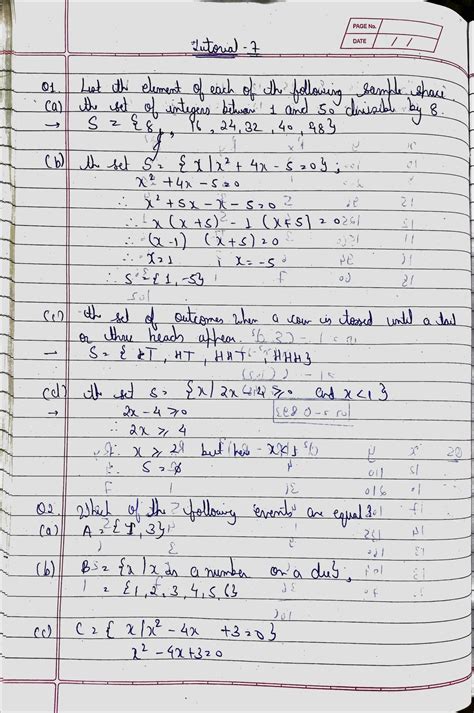 PAGE No.
DATE / /
Tutorial - 7
Q1 List the element of each of the following sample space.
(a) the set of integers between 1 and 50 divisible by 8.
→ S = {8, 16, 24, 32, 40, 48}
(b) the set S = {x | x² + 4x - 5 = 0};
x² + 4x - 5 = 0
∴ x² + 5x - x - 5 = 0
∴ x(x+5) - 1(x+5) = 0
∴ (x-1) (x+5) = 0
∴ x = 1 ; x = -5
∴ S = {1, -5}
(c) the set of outcomes when a coin is tossed until a tail
or three heads appear.
→ S = {T, HT, HHT, HHH}
(d) the set S = {x | 2x - 4 ≥ 0 and x < 1}
→ 2x - 4 ≥ 0
∴ 2x ≥ 4
∴ x ≥ 2 but here x < 1
∴ S = ϕ
Q2. Which of the following events are equal?
(a) A = {1, 3}
(b) B = {x | x is a number on a die};
= {1, 2, 3, 4, 5, 6}
(c) C = {x | x² - 4x + 3 = 0}
x² - 4x + 3 = 0